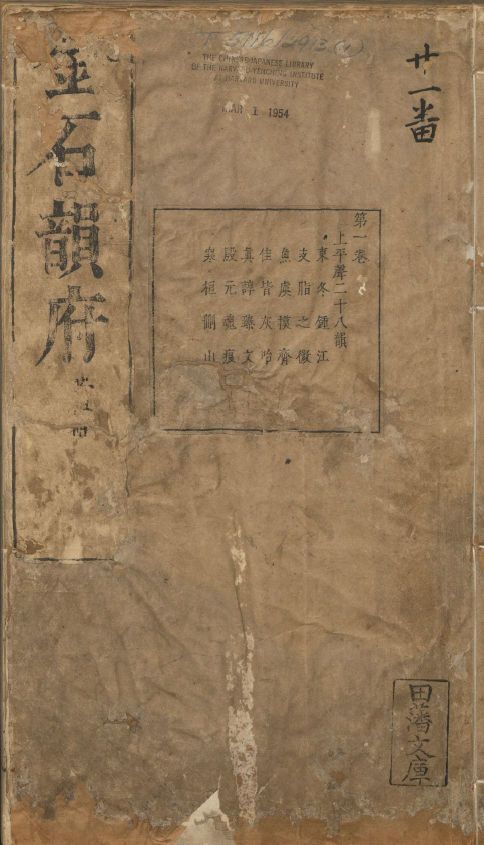 T 5156/2913 (1)
THE CHINESE-JAPANESE LIBRARY
OF THE HARVARD-YENCHING INSTITUTE
AT HARVARD UNIVERSITY
MAR 1 1954
廿一番
第一卷
上平聲二十八韻
東冬鍾江
支脂之微
魚虞模齊
佳皆灰咍
真諄臻文
殷元魂痕
寒桓刪山
金石韻府
田藩文庫